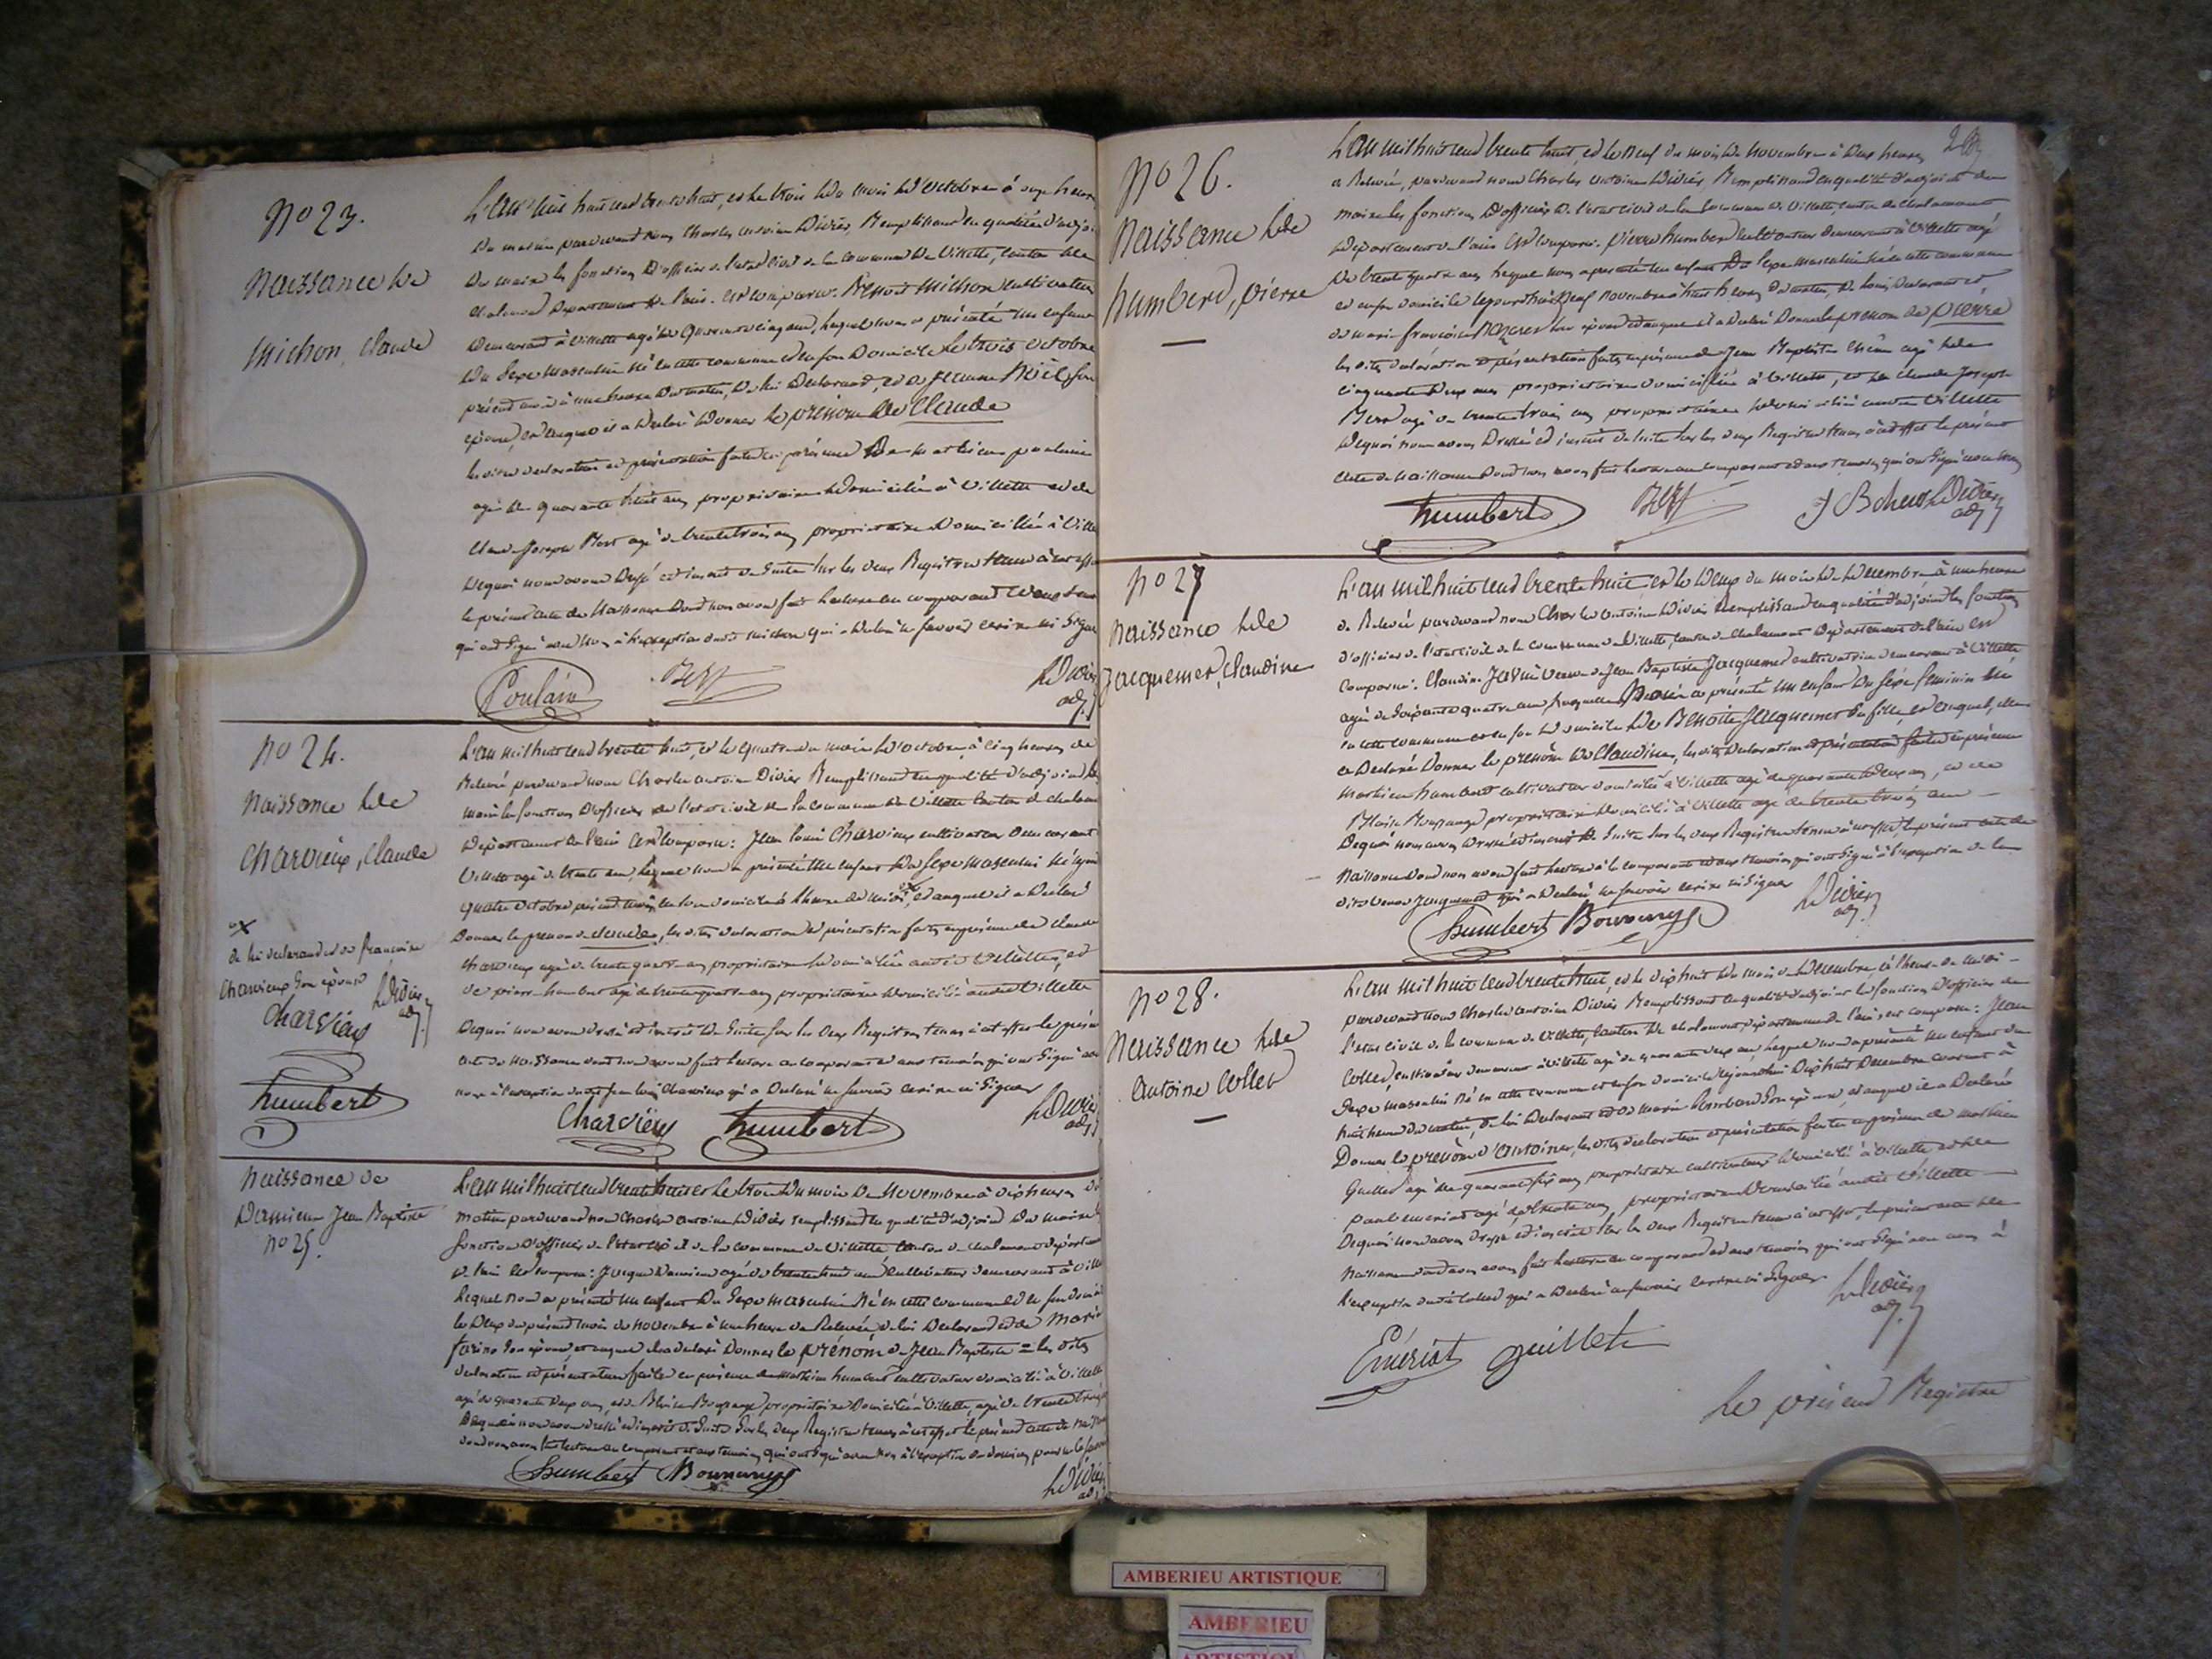 No 23.
Naissance de
Michon, Claude
L'an mil huit cent trente huit, et le trois du mois d'octobre à onze heures
du matin pardevant nous Charles antoine Didier, Remplissant en qualité d'adjo
du maire les fonctions d'officier de l'etat civil de la Commune de Villette, canton de
chalamont Departement de l'ain. est comparu. Benoit Michon cultivateur
demeurant à Villette agé de Quarante cinq ans, lequel nous a présenté un enfant
du Sexe Masculin né en cette commune et en son Domicile le trois octobre
présent mois à une heure du matin, de lui Declarant, et de jeanne Noël son
épouse, et auquel il a declaré Donner le prénom de Claude
les dites declaration et présentation faites en présence de
agé de quarante huit ans propriétaire domicilié à Villette et de
Claude Joseph agé de trente trois ans propriétaire Domicilié à Ville
Dequoi nous avons Dressé et inscrit de suite sur les deux Registres tenus à cet eff
le présent acte de Naissance dont nous avons fait lecture au comparant et aux tem
qui ont Signé avec Nous à l'exception dudit Michon qui a declaré ne savoir écrire ni Signer
Poulain
Didier
adj.
No 24.
Naissance de
Charvieux, Claude
de lui declarant et de françoise
Charvieux Son épouse
Didier
adj.
Charvieux
humbert
L'an mil huit cent trente huit, et le quatre du mois d'octobre, à cinq heures de
Relevé pardevant nous Charles antoine Didier Remplissant en qualité d'adjoint du
maire les fonctions d'officier de l'etat civil de la Commune de Villette Canton de chalam
Département de l'ain est comparu: Jean louis Charvieux cultivateur demeurant
Villette agé de trente ans, lequel nous a présenté un enfant du Sexe Masculin né
quatre octobre présent mois en son domicile à l'heure de midi, et auquel il a Declaré
Donner le prenom de claude, les dites declaration et présentation faites en présence de claude
charvieux agé de trente quatre ans propriétaire domicilié audit Villette, et
de pierre humbert agé de trente quatre ans propriétaire domicilié audit Villette
Dequoi nous avons dressé et inscrit de Suite Sur les deux Registres tenus à cet effet le prése
acte de Naissance dont nous avons fait lecture au comparant et aux temoins qui ont Signé avec
nous à l'exception dudit Jean louis Charvieux qui a Declaré ne savoir écrire ni Signer
Charvieux humbert
Didier
adj.
Naissance de
Damien Jean Baptiste
No 25.
L'an mil huit cent trente huit et le trois du mois de Novembre à dix heures du
matin pardevant nous Charles antoine Didier remplissant en qualité d'adjoint du maire les
fonctions d'officier de l'etat civil de la Commune de Villette, Canton de chalamont départem
de l'ain est comparu: Jacques Damien agé de trente huit ans cultivateur demeurant à Ville
lequel nous a présenté un enfant du Sexe masculin Né en cette commune et en son domi
le deux du présent mois de novembre à une heure de Relevée, de lui declarant et de Marie
farine Son épouse, et auquel il a declaré Donner le prénom de Jean Baptiste = les dites
declaration et présentation faites en présence de mathieu humbert cultivateur domicilié à Villette
agé de quarante deux ans, et de Blaise propriétaire Domicilié à Villette, agé de trente trois
Dequoi nous avons dressé et inscrit de Suite Sur les deux Registres tenus à cet effet le présent acte de
dont nous avons fait lecture au comparant et aux temoins qui ont Signé avec Nous à l'exception de Damien
humbert
Didier
No 26.
Naissance de
humbert, pierre
L'an mil huit cent trente huit, et le Neuf du mois de Novembre à Deux heures
de Relevée, pardevant nous Charles antoine Didier Remplissant en qualité d'adjoint du
maire les fonctions D'officier de l'etat civil de la Commune de Villette, canton de chalamont
département de l'ain est comparu. pierre humbert cultivateur demeurant à Villette agé
de trente quatre ans lequel nous a présenté un enfant Du Sexe masculin né en cette commune
et en son domicile le jourd'hui Neuf novembre à huit heures du matin, de lui Declarant et
de marie françoise son épouse et auquel il a Declaré Donner le prenom de pierre
les dites declaration et présentation faites en présence de Jean Baptiste agé de
cinquante deux ans propriétaire domicilié à Villette, et de Claude Joseph
agé de trente trois ans propriétaire domicilié audit Villette
dequoi nous avons Dressé et inscrit de suite sur les deux Registres tenus à cet effet le présent
acte de Naissance dont nous avons fait lecture au comparant et aux temoins qui ont Signé avec nous
humbert
Didier
adj.
No 27
Naissance de
Jacquemet, Claudine
L'an mil huit cent trente huit, et le deux du mois de decembre, à une heure
de Relevée pardevant nous Charles antoine Didier Remplissant en qualité d'adjoint les fonctions
d'officier de l'etat civil de la commune de Villette, canton de chalamont Département de l'ain est
comparue: Claudine veuve de Jean Baptiste Jacquemet cultivatrice demeurant à Villette
agée de Soixante quatre ans, laquelle Nous a présenté un enfant du Sexe feminin né
en cette commune et en son domicile de Benoite Jacquemet Sa fille, et auquel, elle
a Declaré Donner le prenom de Claudine, les dites declaration et présentation faites en présence
mathieu humbert cultivateur domicilié à Villette agé de quarante deux ans, et de
Blaise propriétaire domicilié à Villette agé de trente trois ans
Dequoi nous avons dressé et inscrit de Suite Sur les deux Registres tenus à cet effet, le présent acte de
Naissance dont nous avons fait lecture à la comparante et aux temoins qui ont Signé à l'exception de la
dite veuve Jacquemet qui a Declaré ne savoir écrire ni Signer
humbert
Didier
adj.
No 28.
Naissance de
Antoine Collet
L'an mil huit cent trente huit, et le dix huit du mois de Decembre, à l'heure de midi
pardevant nous Charles antoine Didier Remplissant en qualité d'adjoint les fonctions d'officier de
l'etat civil de la commune de Villette, Canton de chalamont, département de l'ain, est comparu: Jean
Collet, cultivateur demeurant à Villette agé de quarante deux ans, lequel nous a présenté un enfant du
Sexe masculin né en cette commune et en son domicile le jourd'hui Dix huit Decembre courant à
huit heures du matin, de lui Declarant et de marie Son épouse, et auquel il a Declaré
Donner le prénom d'Antoine, les dites declaration et présentation faites en présence de mathieu
Guillet agé de quarante six ans propriétaire cultivateur domicilié à Villette et de
paul emeriat agé de trente ans, propriétaire Domicilié audit Villette
Dequoi nous avons dressé et inscrit Sur les deux Registres tenus à cet effet, le présent acte de
Naissance dont nous avons fait lecture au comparant et aux temoins qui ont Signé avec nous à
l'exception dudit Collet qui a Declaré ne savoir écrire ni Signer
Didier
adj.
Emeriat guillet
Le présent Registre
AMBERIEU ARTISTIQUE
AMBERIEU
ARTISTIQUE